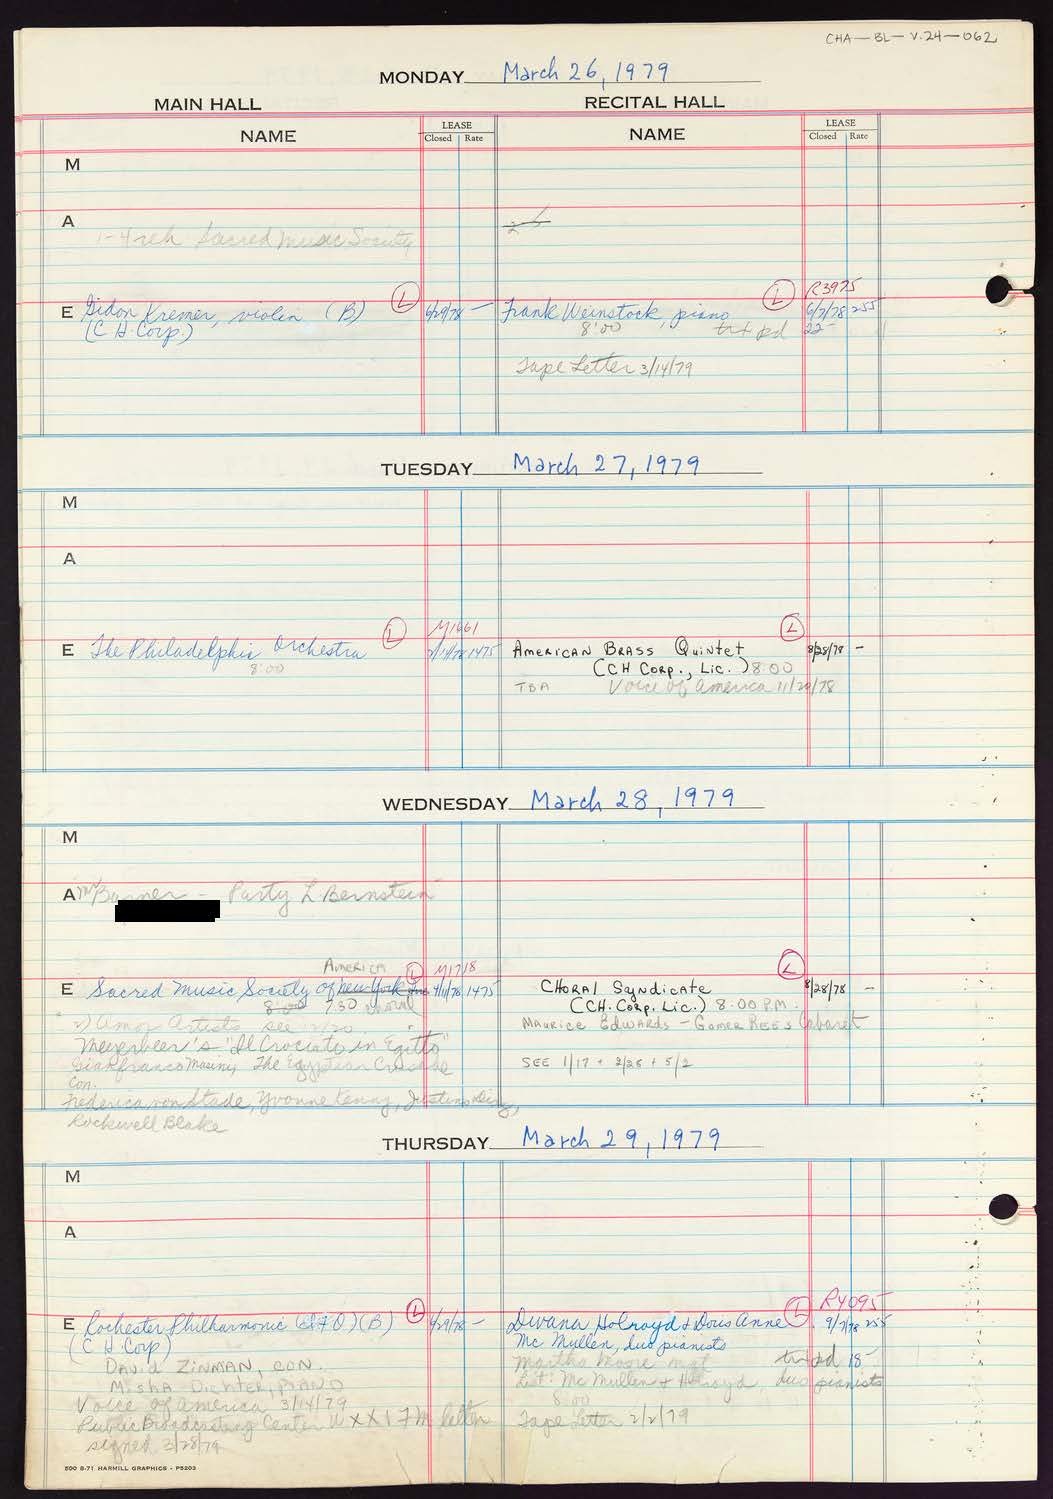 CHA-BL-V.24-062
MONDAY March 26, 1979
MAIN HALL RECITAL HALL
NAME LEASE Closed Rate NAME LEASE Closed Rate
M
A
1-4 reh Sacred Music Society
E Gidon Kremer, violin (B) L 6/29/78 —
(C H Corp)
L R3975
Frank Weinstock, piano 6/7/78 255
8:00 trt pd 22-
Tape Letter 3/14/79
TUESDAY March 27, 1979
M
A
L M1661
E The Philadelphia Orchestra 1475
8:00
L
American Brass Quintet 8/28/78 —
(CH Corp., Lic.) 8:00
TBA Voice of America 11/20/78
WEDNESDAY March 28, 1979
M
A Mr — Party L Bernstein
America L M1718
E Sacred Music Society of New York Inc. 4/11/78 1475
8:00 7:30
2) Amor Artists see 2/20
Meyerbeer's "Il Crociato in Egitto"
Gianfranco Masini, The Egyptian Crusade
Con.
Federica von Stade, Yvonne Kenny, Justino Diaz,
Rockwell Blake
L
Choral Syndicate 8/28/78 —
(CH. Corp. Lic.) 8:00 P.M.
Maurice Edwards — Gomer Rees Cabaret
SEE 1/17 + 2/28 + 5/2
THURSDAY March 29, 1979
M
A
L
E Rochester Philharmonic (B) 6/29/78 —
(C H Corp)
David Zinman, con.
Misha Dichter, piano
Voice of America 3/14/79
Public Broadcasting Center WXXI FM letter
signed 3/28/79
L R4095
Divana Holroyd & Doris Anne 9/7/78 255
Mc Mullen, duo pianists
Martha Moore mgt trt pd 18-
List: Mc Mullen + Holroyd, duo pianists
8:00
Tape Letter 2/2/79
500 8-71 HARMILL GRAPHICS - P5203